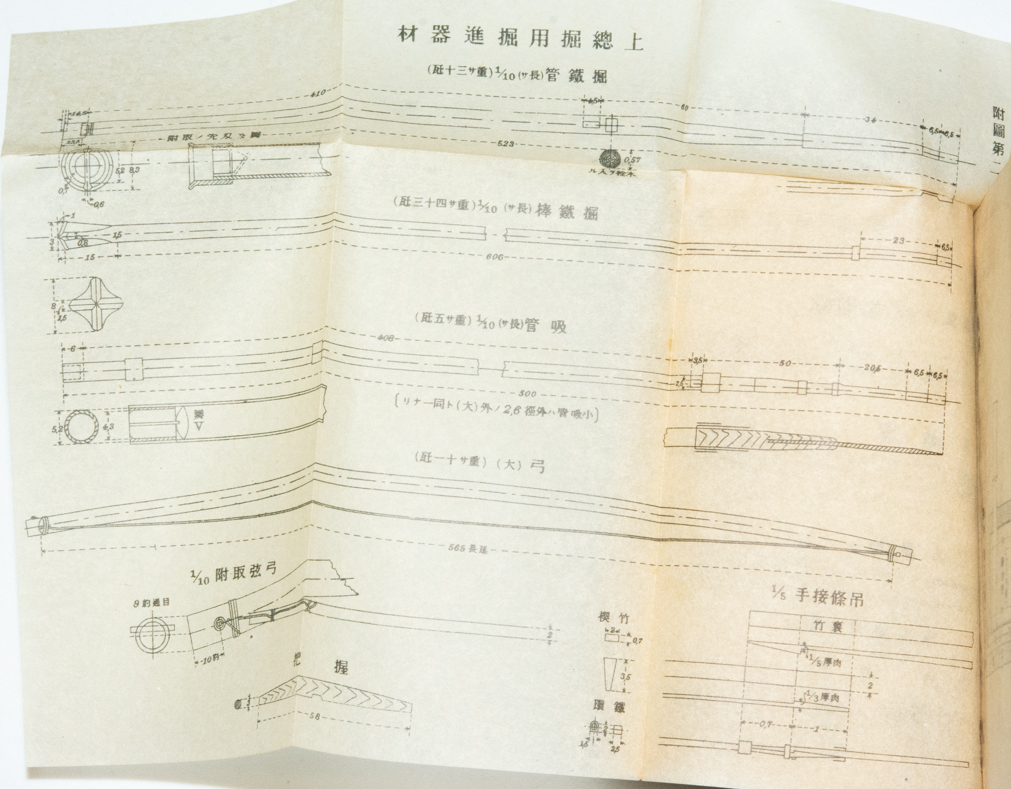 材器進掘用掘總上
(瓩十三サ重) 1/10 (サ長) 管鐵掘
附圖第
410
68
34
6,5
6,5
6,5
523
附取ノ先刄ヲ翼
5,2
8,3
0,7
0,6
0,57
ル入ヲ栓木
(瓩三十四重) 1/10 (サ長) 棒鐵掘
1
3
0,8
15
15
606
23
6,5
8
1,5
(瓩五サ重) 1/10 (サ長) 管吸
6
408
3,5
50
20,5
6,5
6,5
500
{リナ一同ト(大)外ノ2,6徑外ハ管吸小}
5,2
4,3
瓣
(瓩一十サ重) (大) 弓
565 長延
1/10 附取弦弓
目通釣9
10釣
2
把握
58
楔竹
2
0,7
3,5
環鐵
1,5
2,5
1/5 手接條吊
竹裏
1/5 厚肉
2
1/3 厚肉
0,7
1